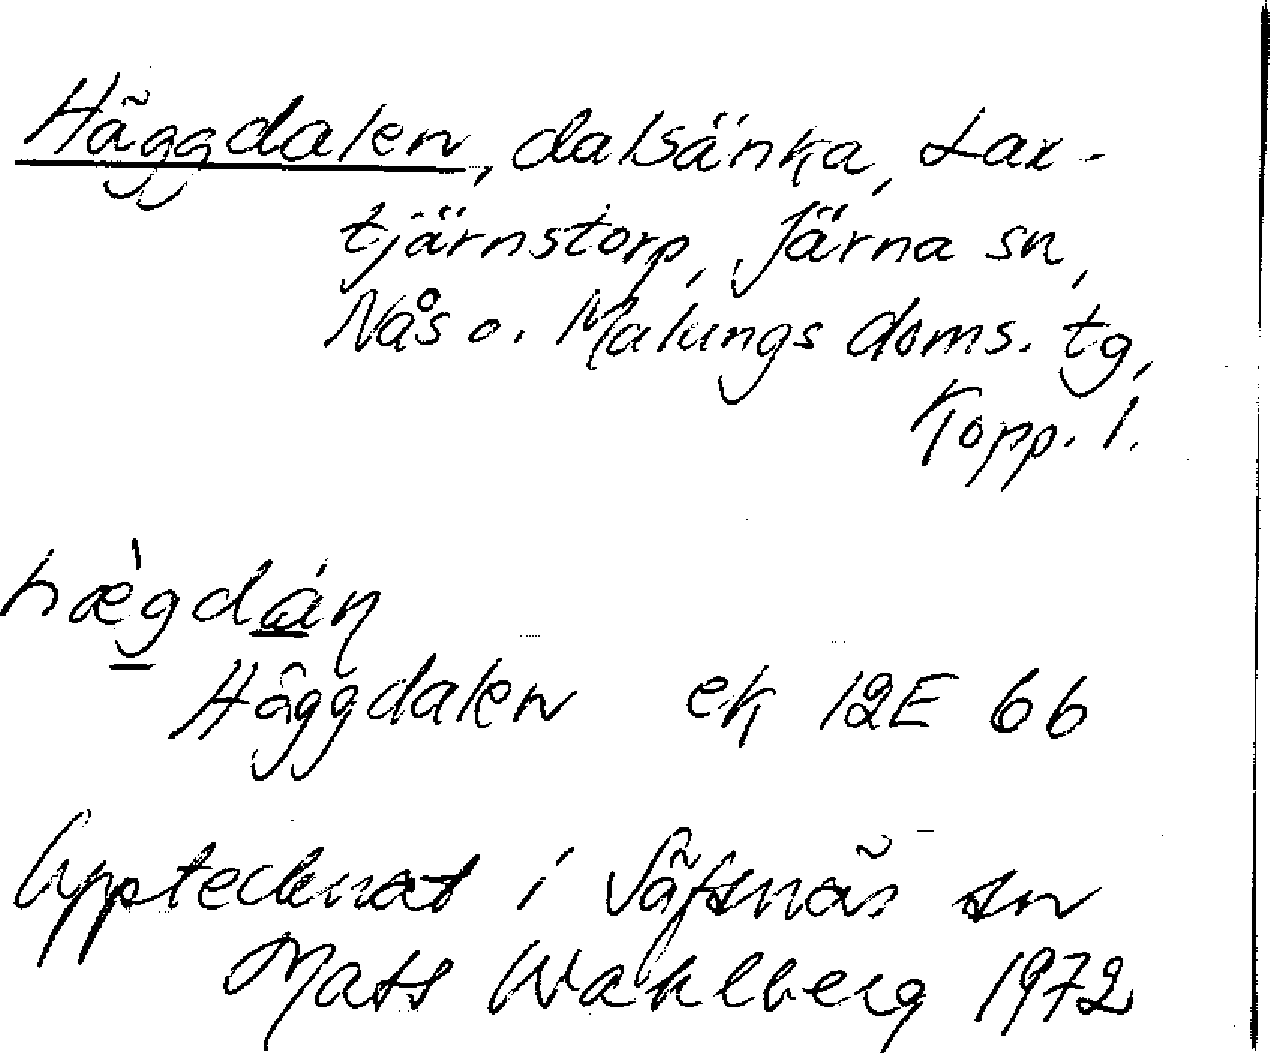 Häggdalen, dalsänka, Lax-
tjärnstorp, Järna sn,
Nås o. Malungs doms. tg,
Kopp. l.
hæ̀gdán
Häggdalen ek 12E 6b
Upptecknat i Säfsnäs sn
Mats Wahlberg 1972